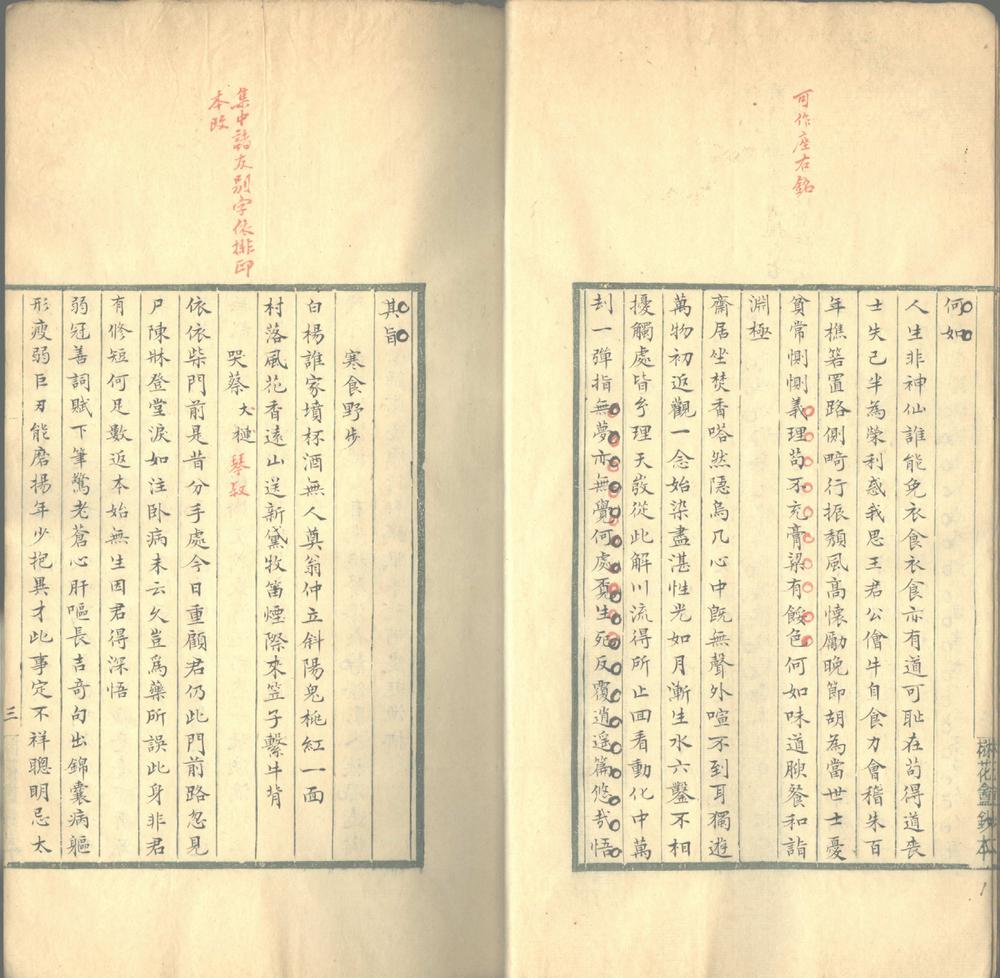 可作座右銘
何如
人生非神仙誰能免衣食衣食亦有道可恥在苟得道喪
士失己半為榮利惑我思王君公儈牛自食力會稽朱百
年樵箬置路側畸行振頹風高懷勵晚節胡為當世士憂
貧常惻惻義理苟不充膏粱有餒色何如味道腴餐和詣
淵極
齋居坐焚香嗒然隱烏几心中既無聲外喧不到耳獨遊
萬物初返觀一念始染盡湛性光如月漸生水六鑿不相
擾觸處皆名理天敚從此解川流得所止回看動化中萬
刦一彈指無夢亦無覺何處覓生死反覆逍遥篇悠哉悟
鈔本
集中諸友別字依排印
本改
其旨
寒食野步
白楊誰家墳杯酒無人奠翁仲立斜陽鬼桃紅一面
村落風花香遠山送新黛牧笛煙際來笠子繫牛背
哭蔡犬槤琴叔
依依柴門前是昔分手處今日重顧君仍此門前路忽見
尸陳牀登堂淚如注卧病未云久豈爲藥所誤此身非君
有修短何足數返本始無生因君得深悟
弱冠善詞賦下筆驚老蒼心肝嘔長吉奇句出錦囊病軀
形瘦弱巨刃能磨揚年少抱異才此事定不祥聰明忌太
三